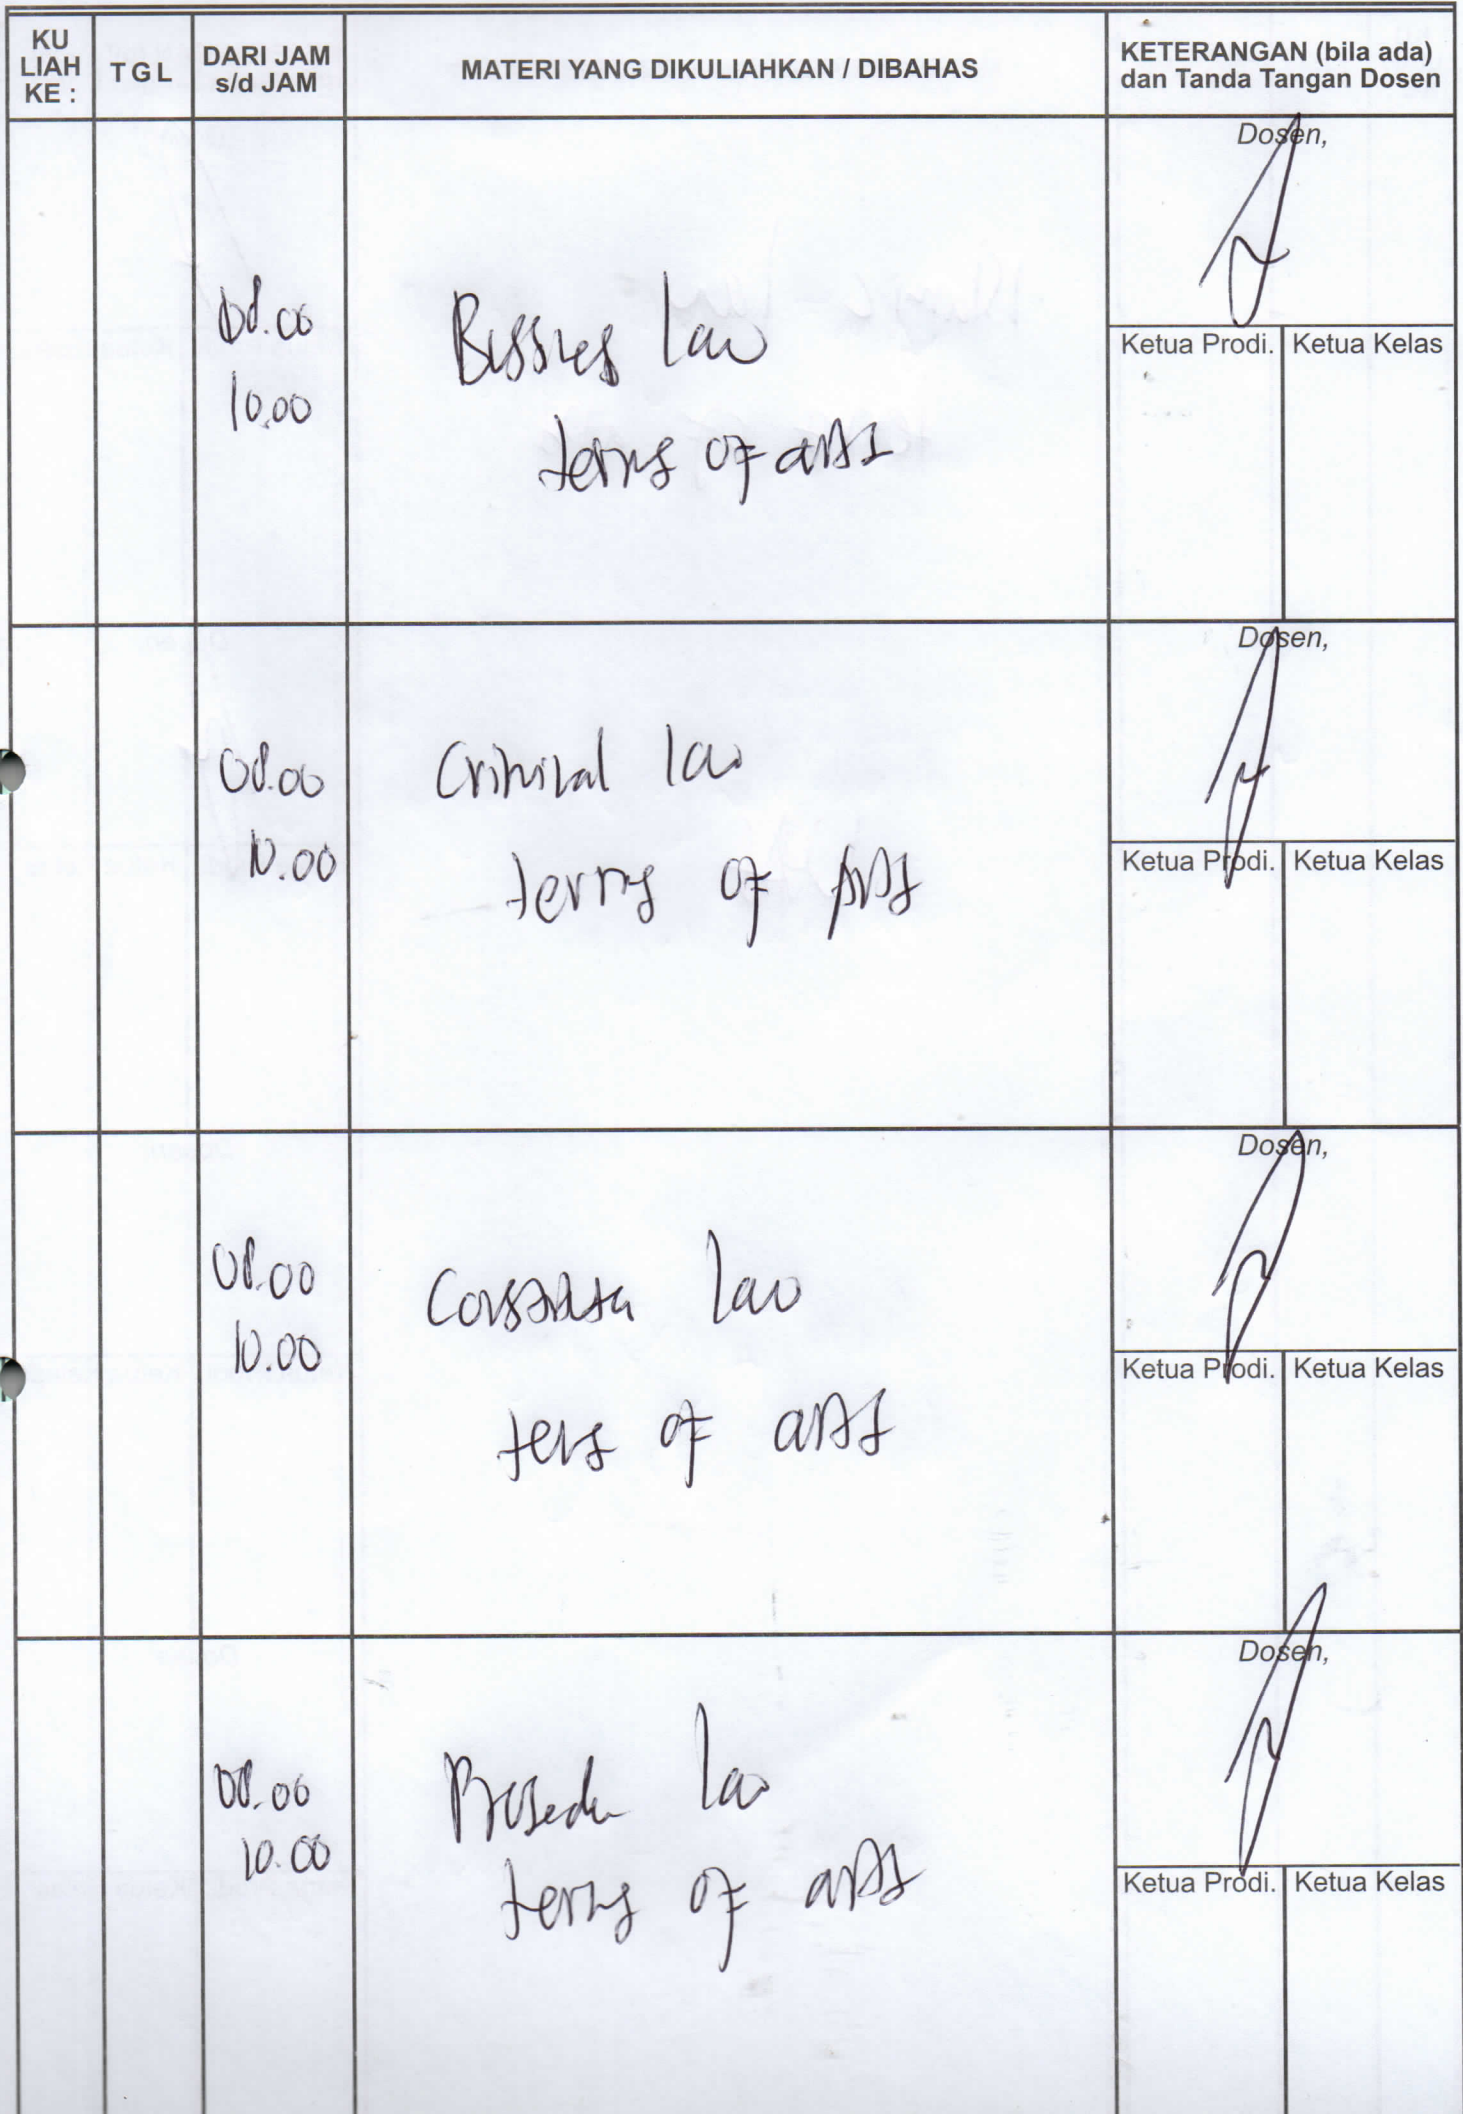 KU LIAH KE :
TGL
DARI JAM s/d JAM
MATERI YANG DIKULIAHKAN / DIBAHAS
KETERANGAN (bila ada)
dan Tanda Tangan Dosen
08.00
10.00
law
terms of
Dosen,
Ketua Prodi.
Ketua Kelas
08.00
10.00
Criminal law
terms of
Dosen,
Ketua Prodi.
Ketua Kelas
08.00
10.00
law
of
Dosen,
Ketua Prodi.
Ketua Kelas
08.00
10.00
law
terms of
Dosen,
Ketua Prodi.
Ketua Kelas